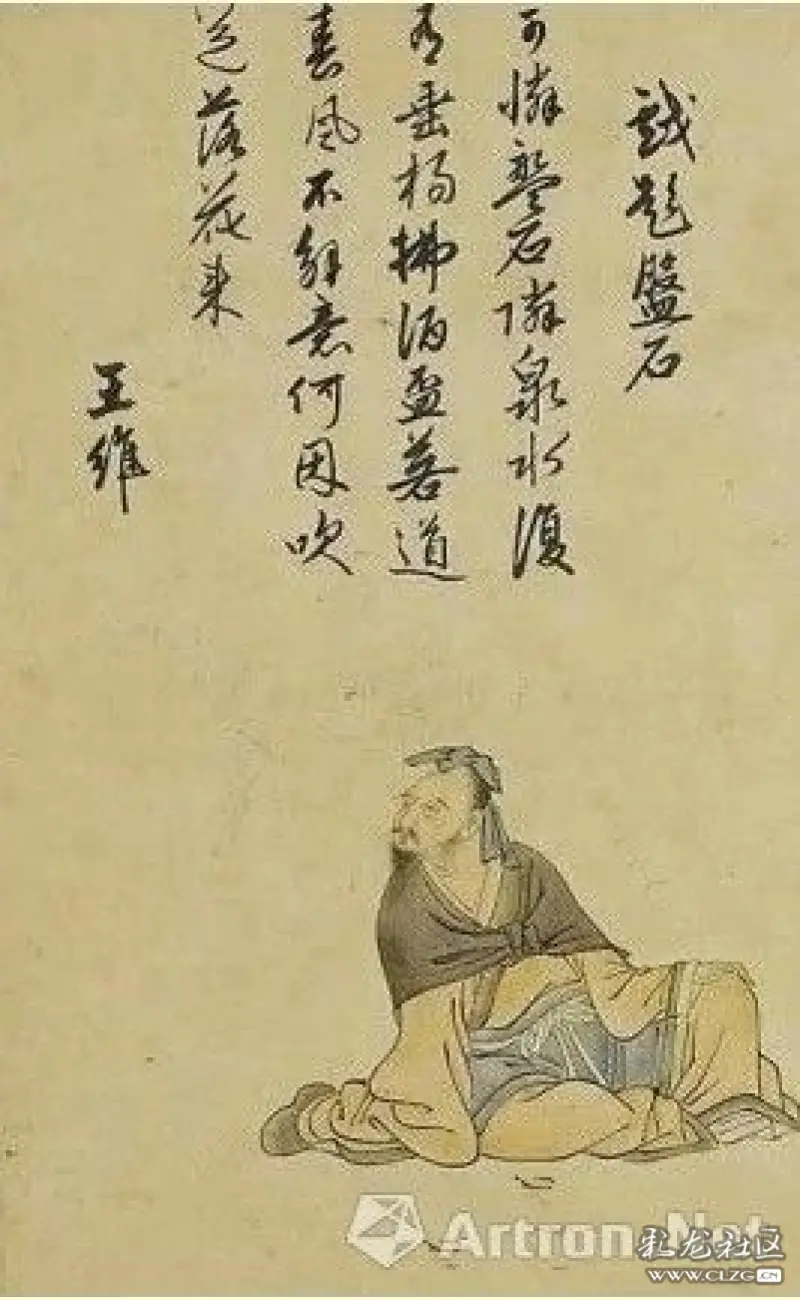 戲題盤石
可憐盤石隣泉水復
有垂楊拂酒盃若道
春風不解意何因吹
送落花來
王維
Artron.Net
彩龙社区
WWW.CLZG.CN